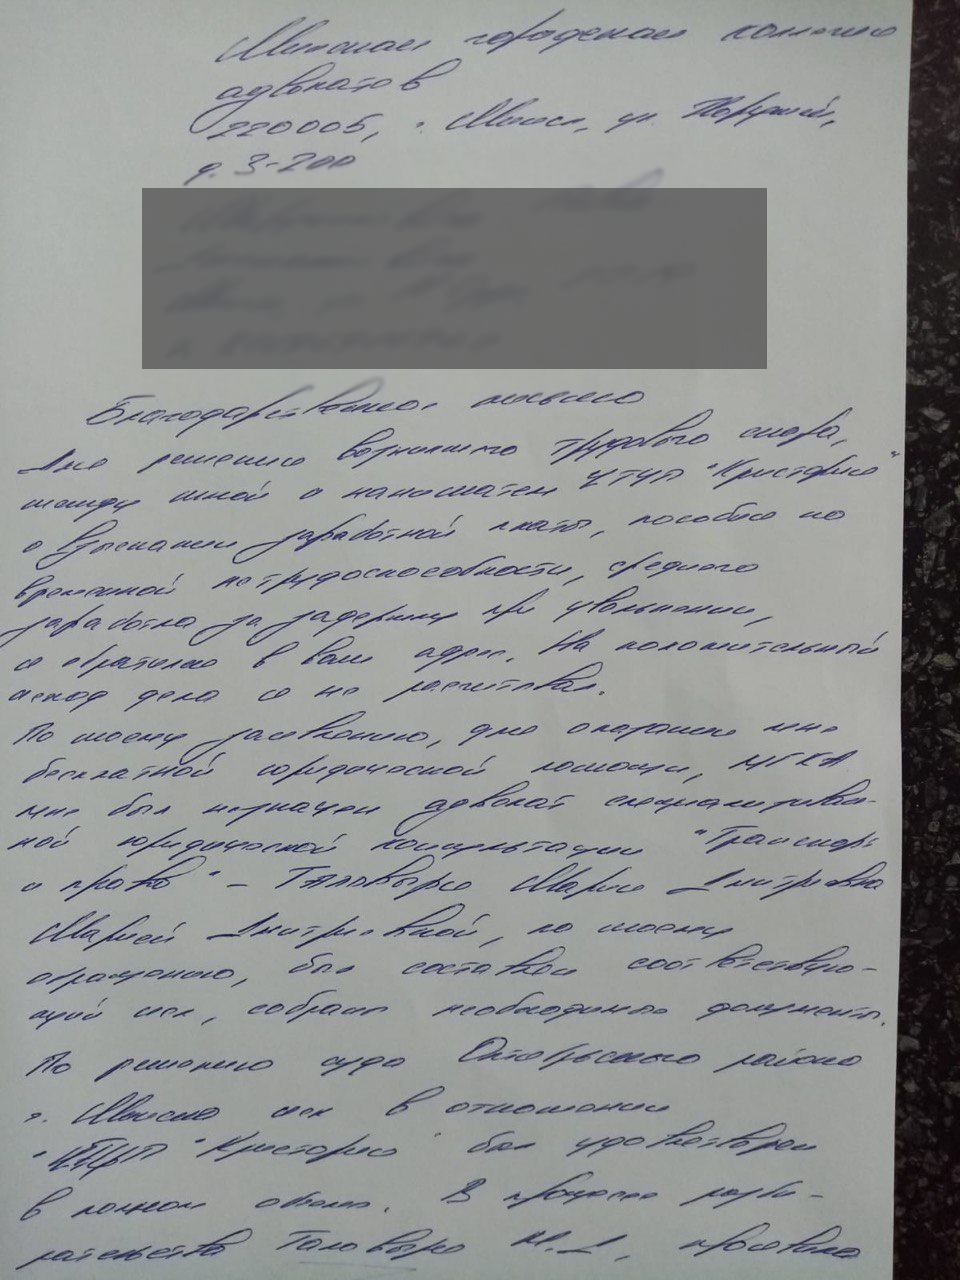 Минская городская коллегия
адвокатов
220005, г. Минск, ул.
д. 3-200
Благодарственное письмо
Для решения возникшего трудового спора,
между мной и нанимателем ЧТУП "
о взыскании заработной платы, пособия по
временной нетрудоспособности, среднего
заработка за задержку при увольнении,
я обратился в ваш адрес. На положительный
исход дела я не расчитывал.
По моему заявлению, для оказания мне
бесплатной юридической помощи, МГКА
мне был назначен адвокат специализирован-
ной юридической консультации "Транспорт
и право" – Таловыря Мария Дмитриевна
Марией Дмитриевной, по моему
обращению, был составлен соответствую-
щий иск, собраны необходимые документы.
По решению суда Октябрьского района
г. Минска иск в отношении
был удовлетворен
в полном объеме. В процессе разби-
рательства Таловыря М.Д. проявила